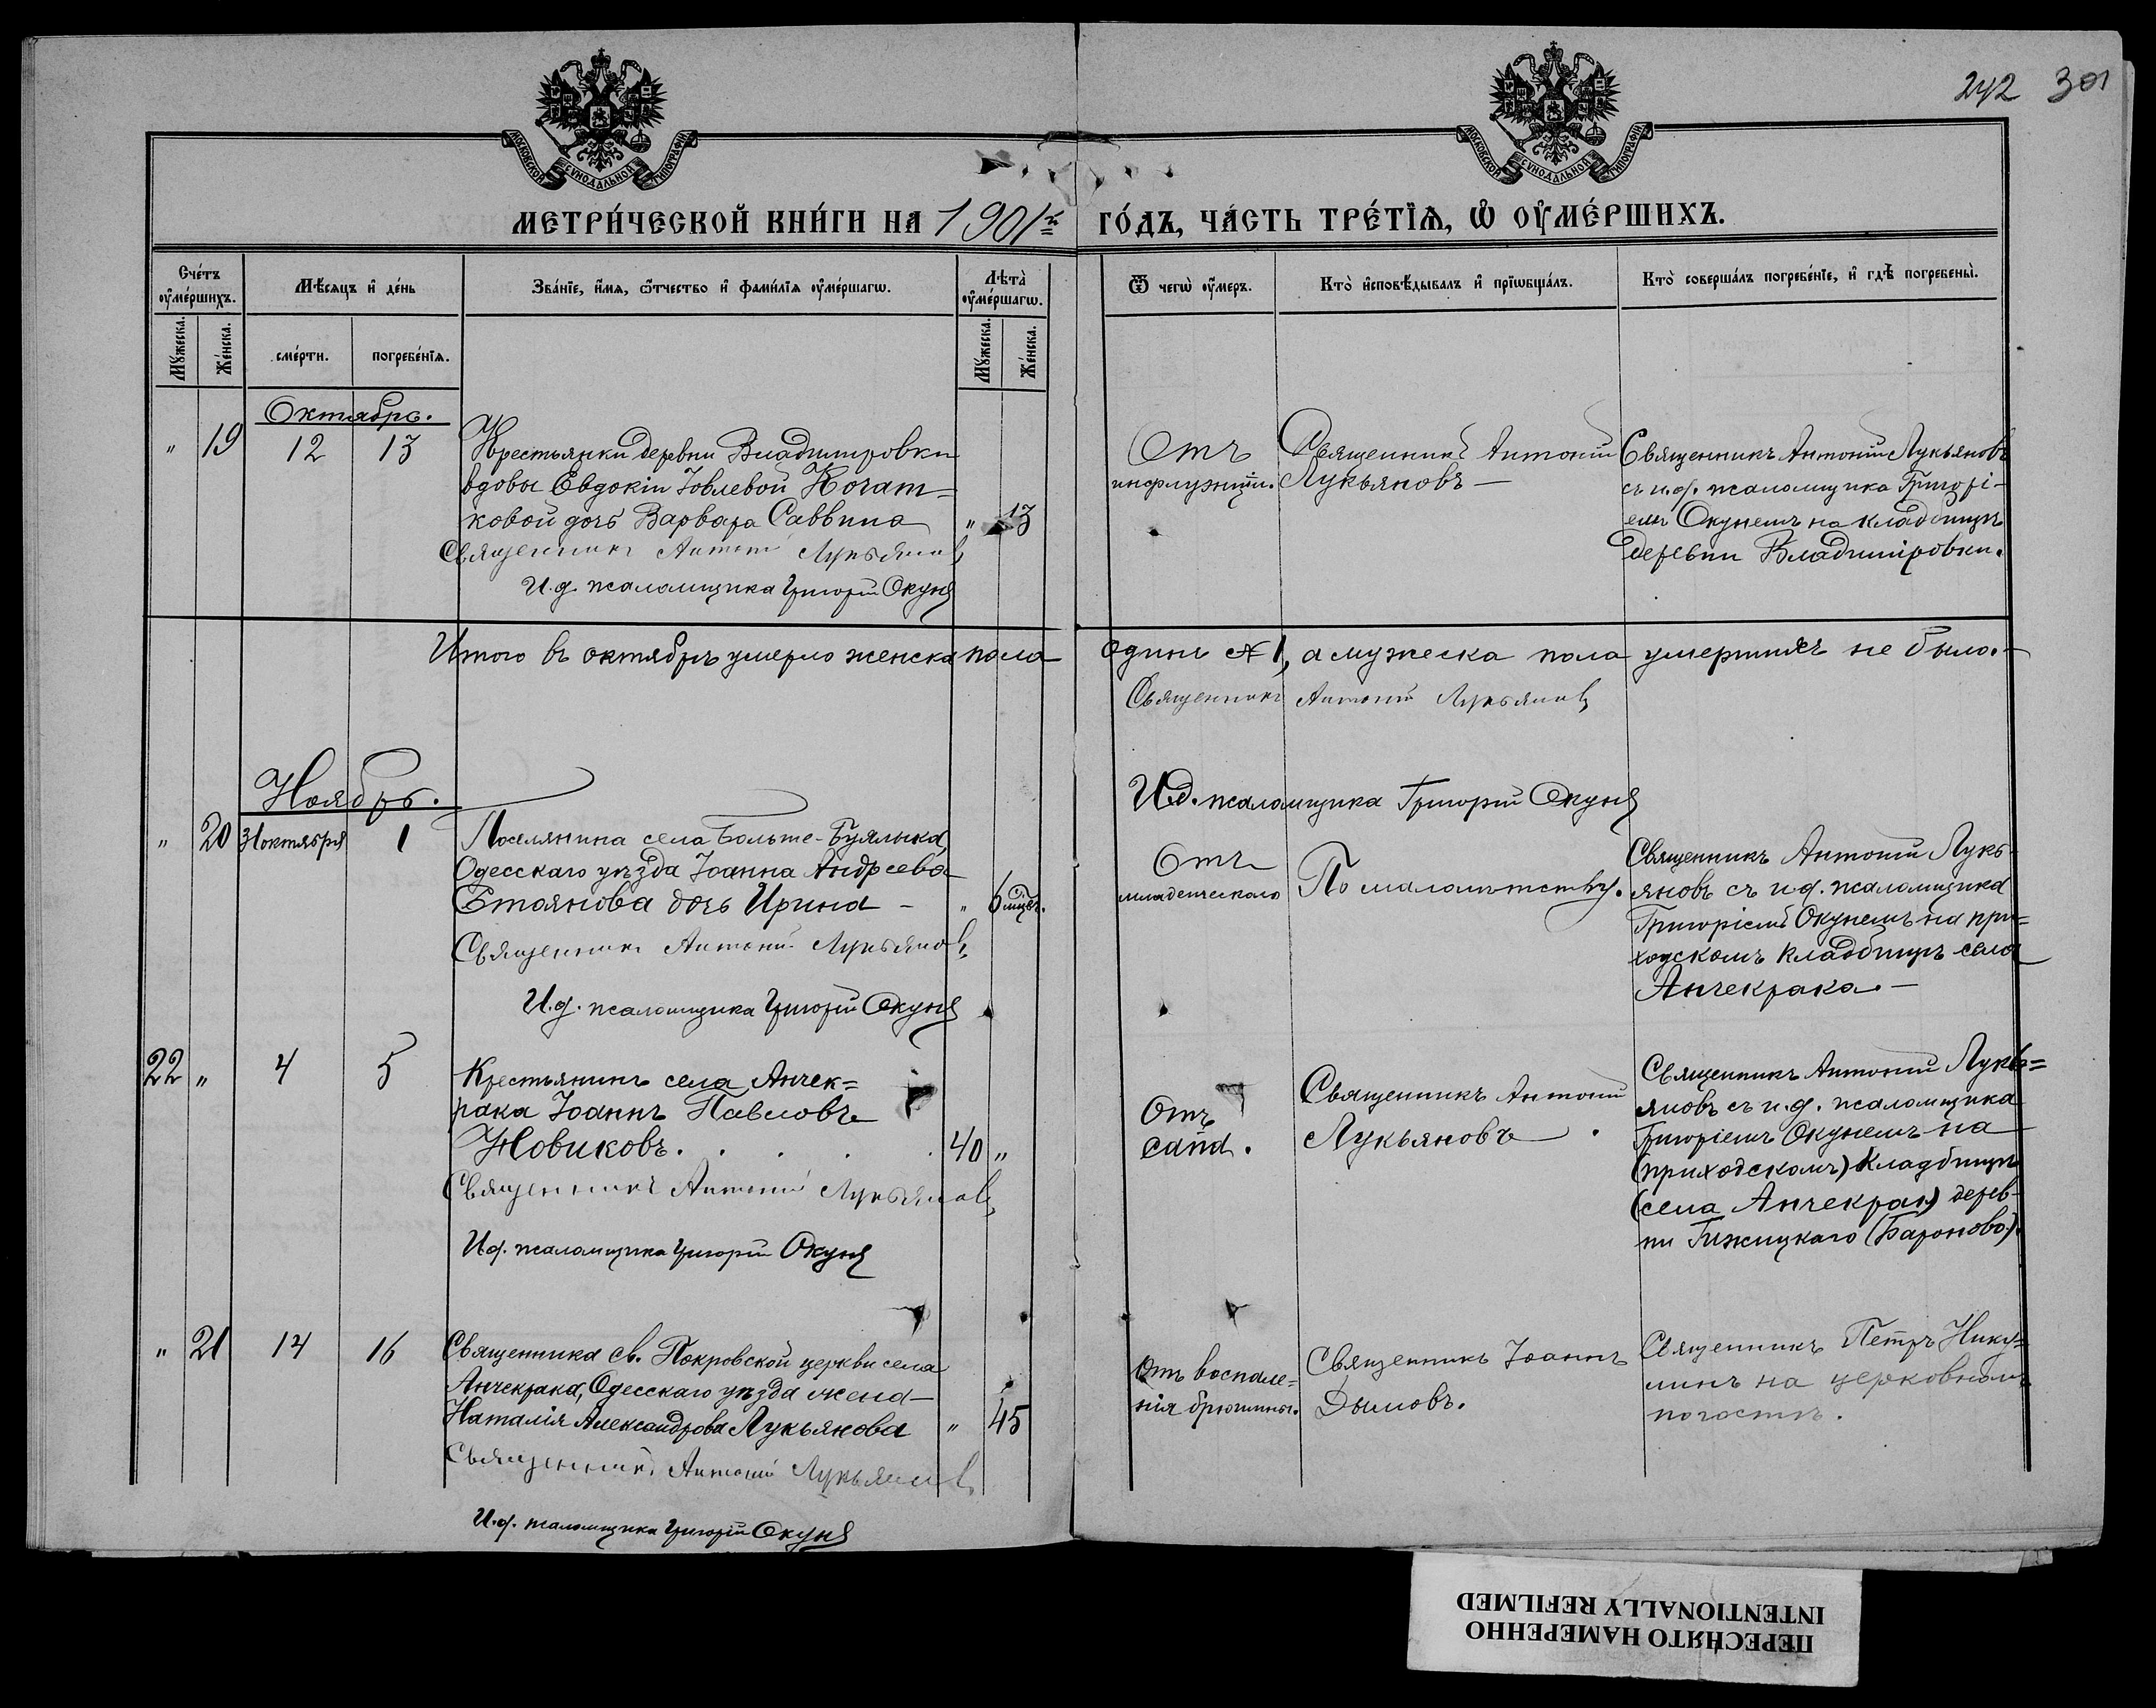 242 301
МОСКОВСКОЙ СѴНОДАЛЬНОЙ ТИПОГРАФІИ
МОСКОВСКОЙ СѴНОДАЛЬНОЙ ТИПОГРАФІИ
МЕТРИ́ЧЕСКОЙ КНИ́ГИ НА 1901й ГО́ДЪ, ЧА́СТЬ ТРЕ́ТІѦ, Ѡ ОУ҆МЕ́РШИХЪ.
Сче́тъ оу҆ме́ршихъ.
Мѣ́сяцъ и҆ де́нь
Зва́нїе, и҆́мя, ѿтчество и҆ фами́лїя оу҆ме́ршагѡ.
Лѣта̀ оу҆ме́ршагѡ.
Ѿ чегѡ̀ оу҆́меръ.
Кто̀ и҆сповѣ́дывалъ и҆ прїѡбща́лъ.
Кто̀ соверша́лъ погребе́нїе, и҆ гдѣ̀ погребены̀.
Мꙋ́жеска.
Же́нска.
сме́рти.
погребе́нїя.
Мꙋ́жеска.
Же́нска.
Октябрь.
" 19 12 13
Крестьянки деревни Владимировки
вдовы Евдокіи Іовлевой Когат=
ковой дочь Варвара Саввина " 13
Священникъ Антоній Лукьяновъ
И.д. псаломщика Григорій Окуня
Отъ
инфлуэнціи.
Священникъ Антоній
Лукьяновъ —
Священникъ Антоній Лукьяновъ
съ и.д. псаломщика Григорі-
емъ Окунемъ на кладбищѣ
деревни Владиміровки.
Итого въ октябрѣ умерло женска пола один № 1, а мужеска пола умершихъ не было.—
Священникъ Антоній Лукьяновъ
И.д. псаломщика Григорій Окуня
Ноябрь.
" 20 31 октября 1
Поселянина села Больше-Буялыка,
Одесскаго уѣзда Іоанна Андреева
Стоянова дочь Ирина - " 6 мцвъ.
Священникъ Антоній Лукьяновъ
И.д. псаломщика Григорій Окуня
Отъ
младенческаго
По малолѣтству.
Священникъ Антоній Лукь-
яновъ съ и.д. псаломщика
Григоріемъ Окунемъ на при=
ходскомъ кладбищѣ села
Анчекрака.—
22 " 4 5
Крестьянинъ села Анчек=
рака Іоаннъ Павловъ
Новиковъ. . . . . 40 "
Священникъ Антоній Лукьяновъ
И.д. псаломщика Григорій Окуня
Отъ
Священникъ Антоній
Лукьяновъ .
Священникъ Антоній Лукь=
яновъ съ и.д. псаломщика
Григоріемъ Окунемъ на
(приходскомъ) кладбищѣ
(села Анчекрак) дерев-
ни Гижицкаго (Бароново).
" 21 14 16
Священника св. Покровской церкви села
Анчекрака, Одесскаго уѣзда жена
Наталія Александрова Лукьянова " 45
Священникъ Антоній Лукьяновъ
И.д. псаломщика Григорій Окуня
Отъ воспале=
нія брюшины.
Священникъ Іоаннъ
Дымовъ.
Священникъ Петръ Нику=
линъ на церковномъ
погостѣ.
ПЕРЕСНЯТО НАМЕРЕННО
INTENTIONALLY REFILMED